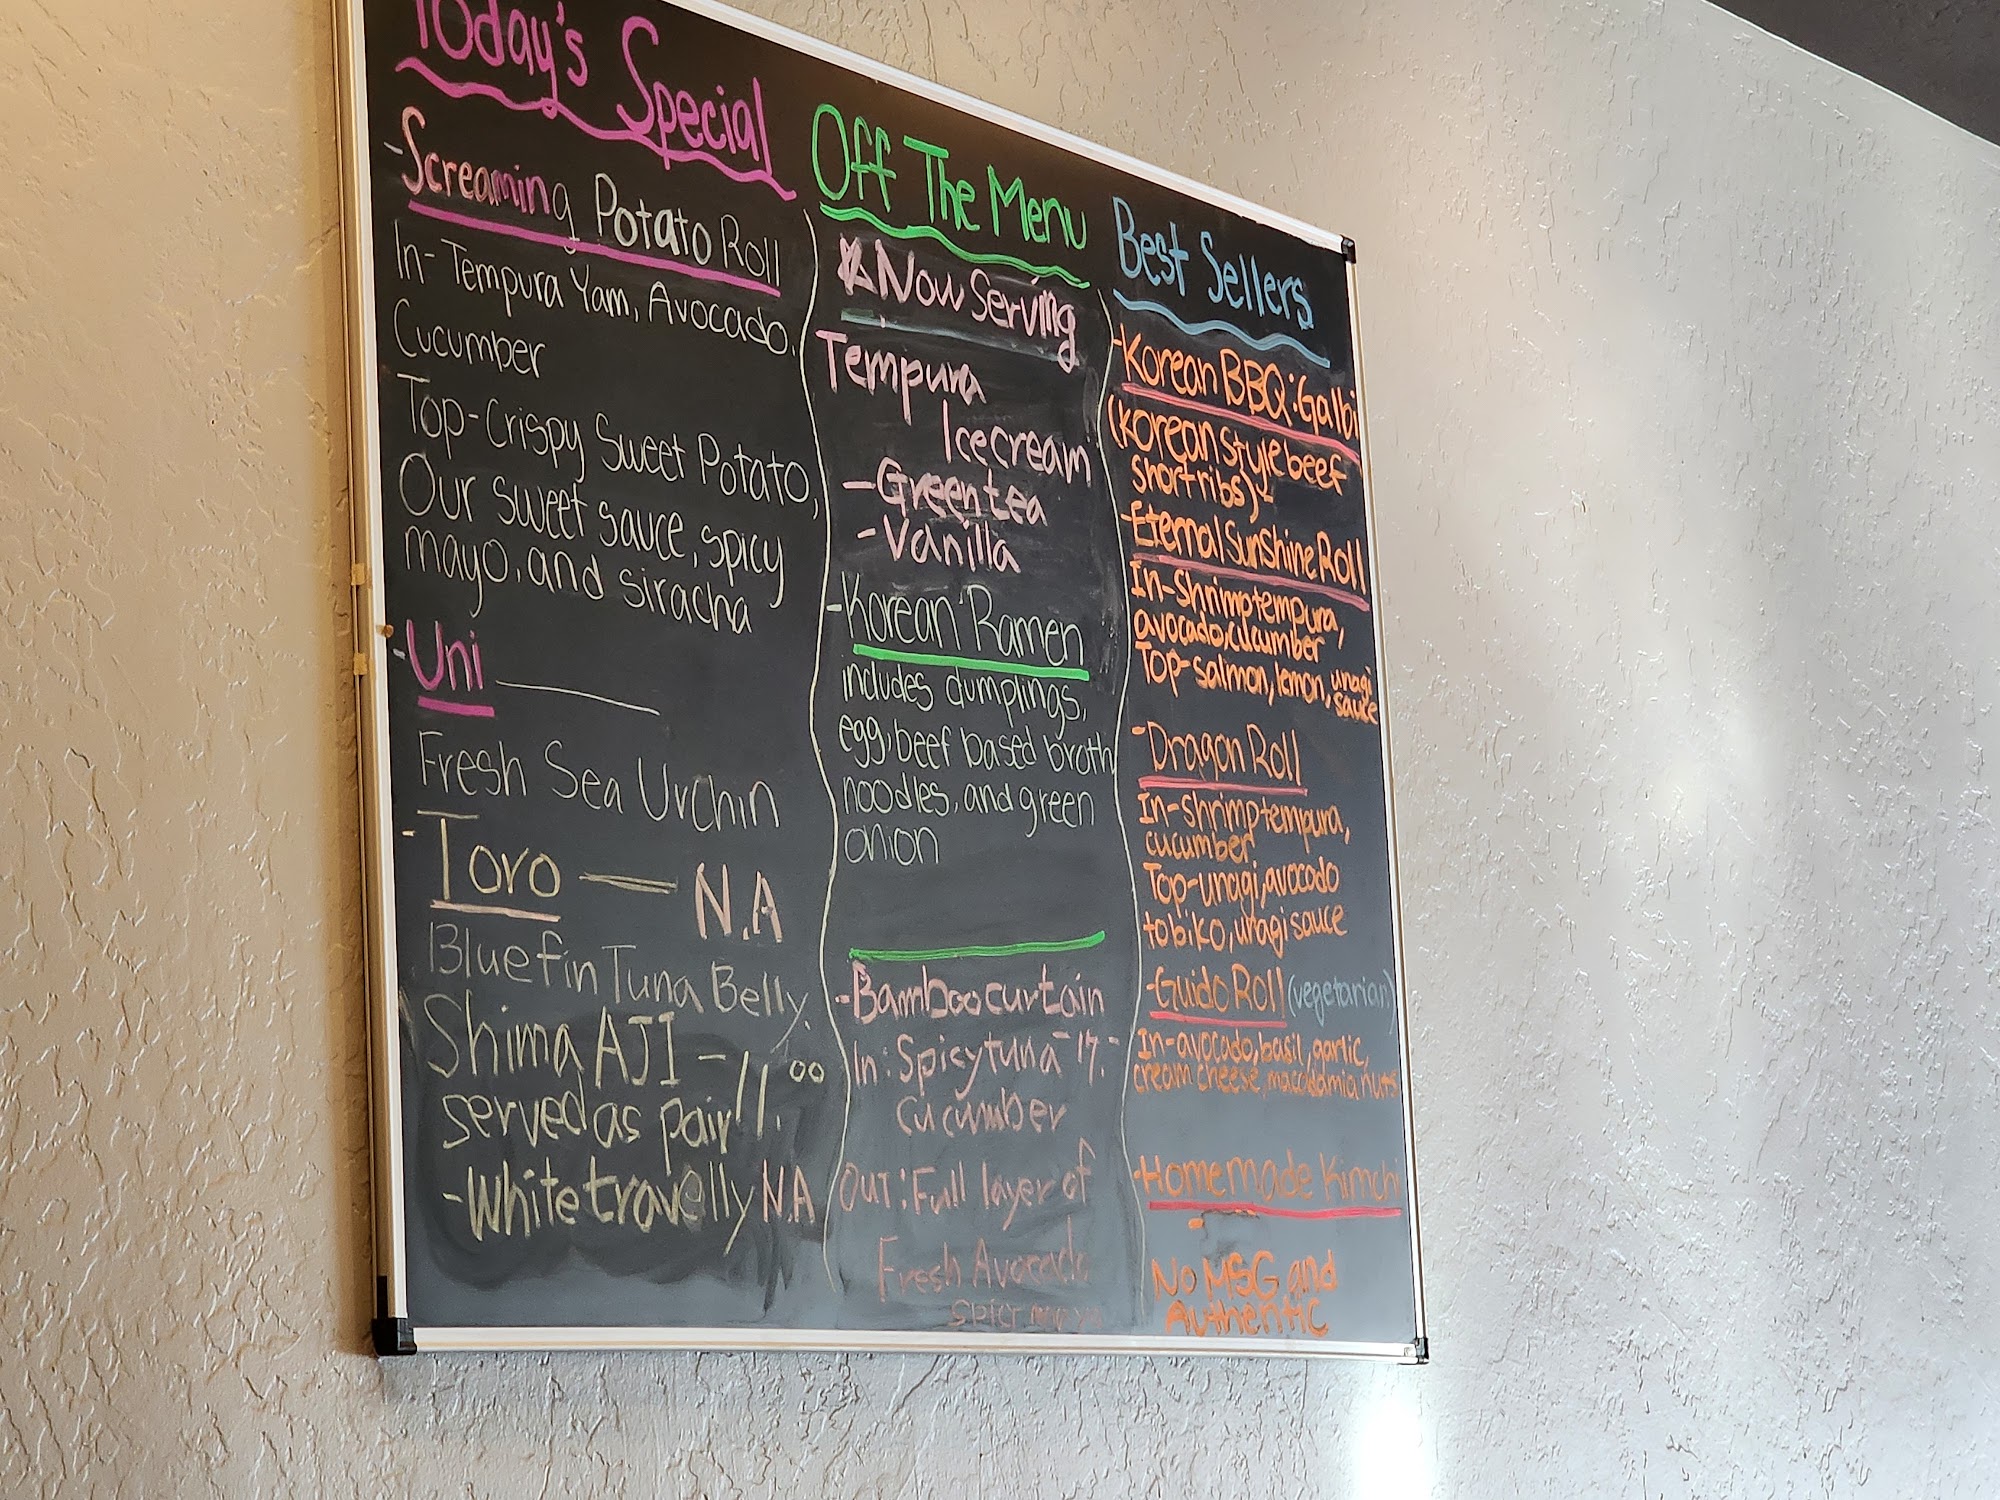 Today's Special
-Screaming Potato Roll
In-Tempura Yam, Avocado,
Cucumber
Top-Crispy Sweet Potato,
Our sweet sauce, spicy
mayo, and siracha
-Uni
Fresh Sea Urchin
-Toro — N.A
Bluefin Tuna Belly.
Shima AJI - 11.00
served as pair!!
-White travelly N.A
Off The Menu
Now Serving
Tempura
Icecream
-Green tea
-Vanilla
-Korean Ramen
includes dumplings,
egg, beef based broth
noodles, and green
onion
-Bamboo curtain
In: Spicy tuna -17.-
cucumber
OUT: Full layer of
Fresh Avocado
spicy mayo
Best Sellers
-Korean BBQ: Galbi
(Korean style beef
short ribs)
-Eternal Sunshine Roll
In-Shrimp tempura,
avocado, cucumber
Top-salmon, lemon, unagi
sauce
-Dragon Roll
In-shrimp tempura,
cucumber
Top-unagi, avocado
tobiko, unagi sauce
-Guido Roll (vegetarian)
In-avocado, basil, garlic,
cream cheese, macadamia nuts
-Homemade Kimchi
No MSG and
Authentic